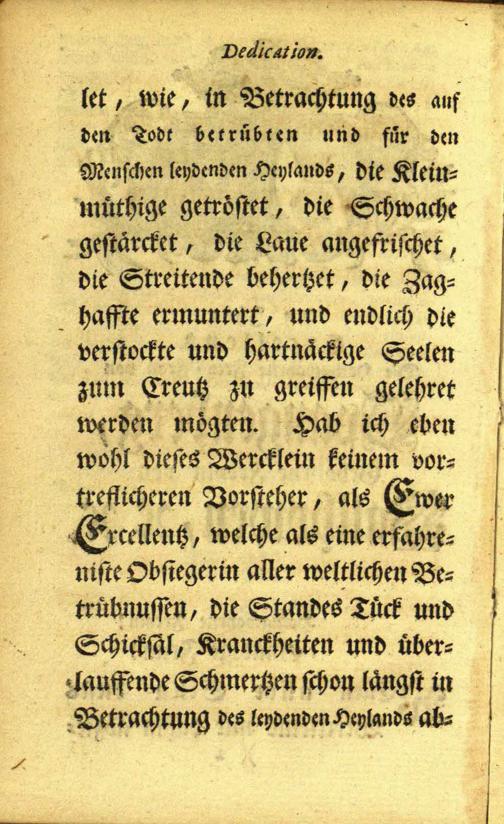 Dedication.
let, wie, in Betrachtung des auf
den Todt betrübten und für den
Menschen leydenden Heylands, die Klein=
müthige getröstet, die Schwache
gestärcket, die Laue angefrischet,
die Streitende behertzet, die Zag=
haffte ermuntert, und endlich die
verstockte und hartnäckige Seelen
zum Creutz zu greiffen gelehret
werden mögten. Hab ich eben
wohl dieses Wercklein keinem vor=
treflicheren Vorsteher, als Ewer
Excellentz, welche als eine erfahre=
niste Obsiegerin aller weltlichen Be=
trübnussen, die Standes Tück und
Schicksäl, Kranckheiten und über=
lauffende Schmertzen schon längst in
Betrachtung des leydenden Heylands ab=